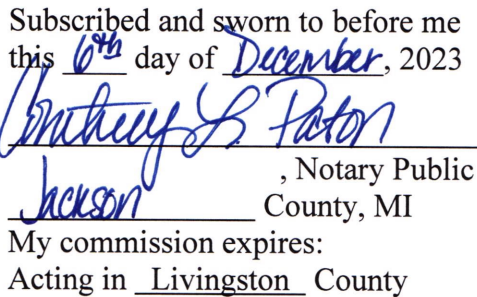 Subscribed and sworn to before me
this 6th day of December, 2023
Courtney L. Paton
, Notary Public
Jackson County, MI
My commission expires:
Acting in Livingston County